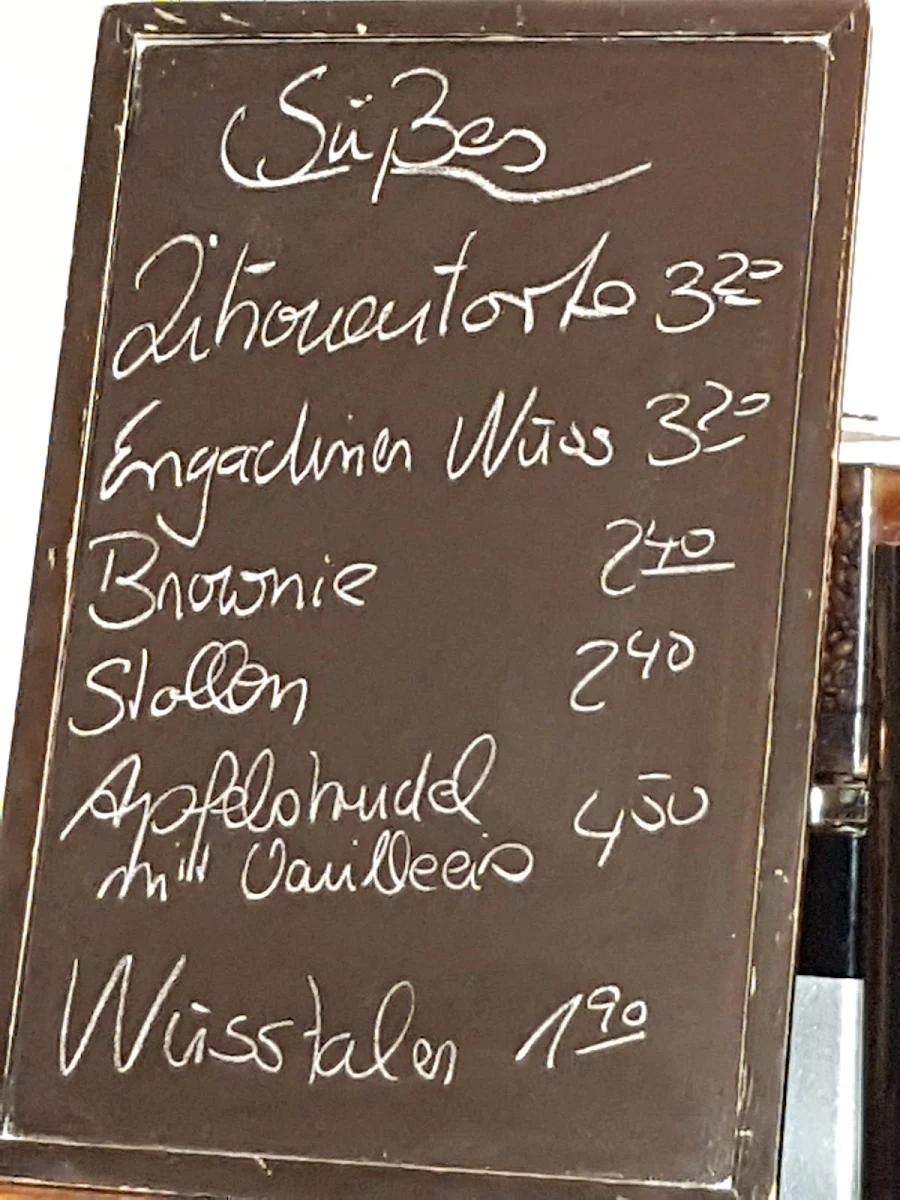 Süßes
Zitronentorte 3 20
Engadiner Nuss 3 20
Brownie 2 40
Stollen 2 40
Apfelstrudel 4 50
mit Vanilleeis
Nusstaler 1 90